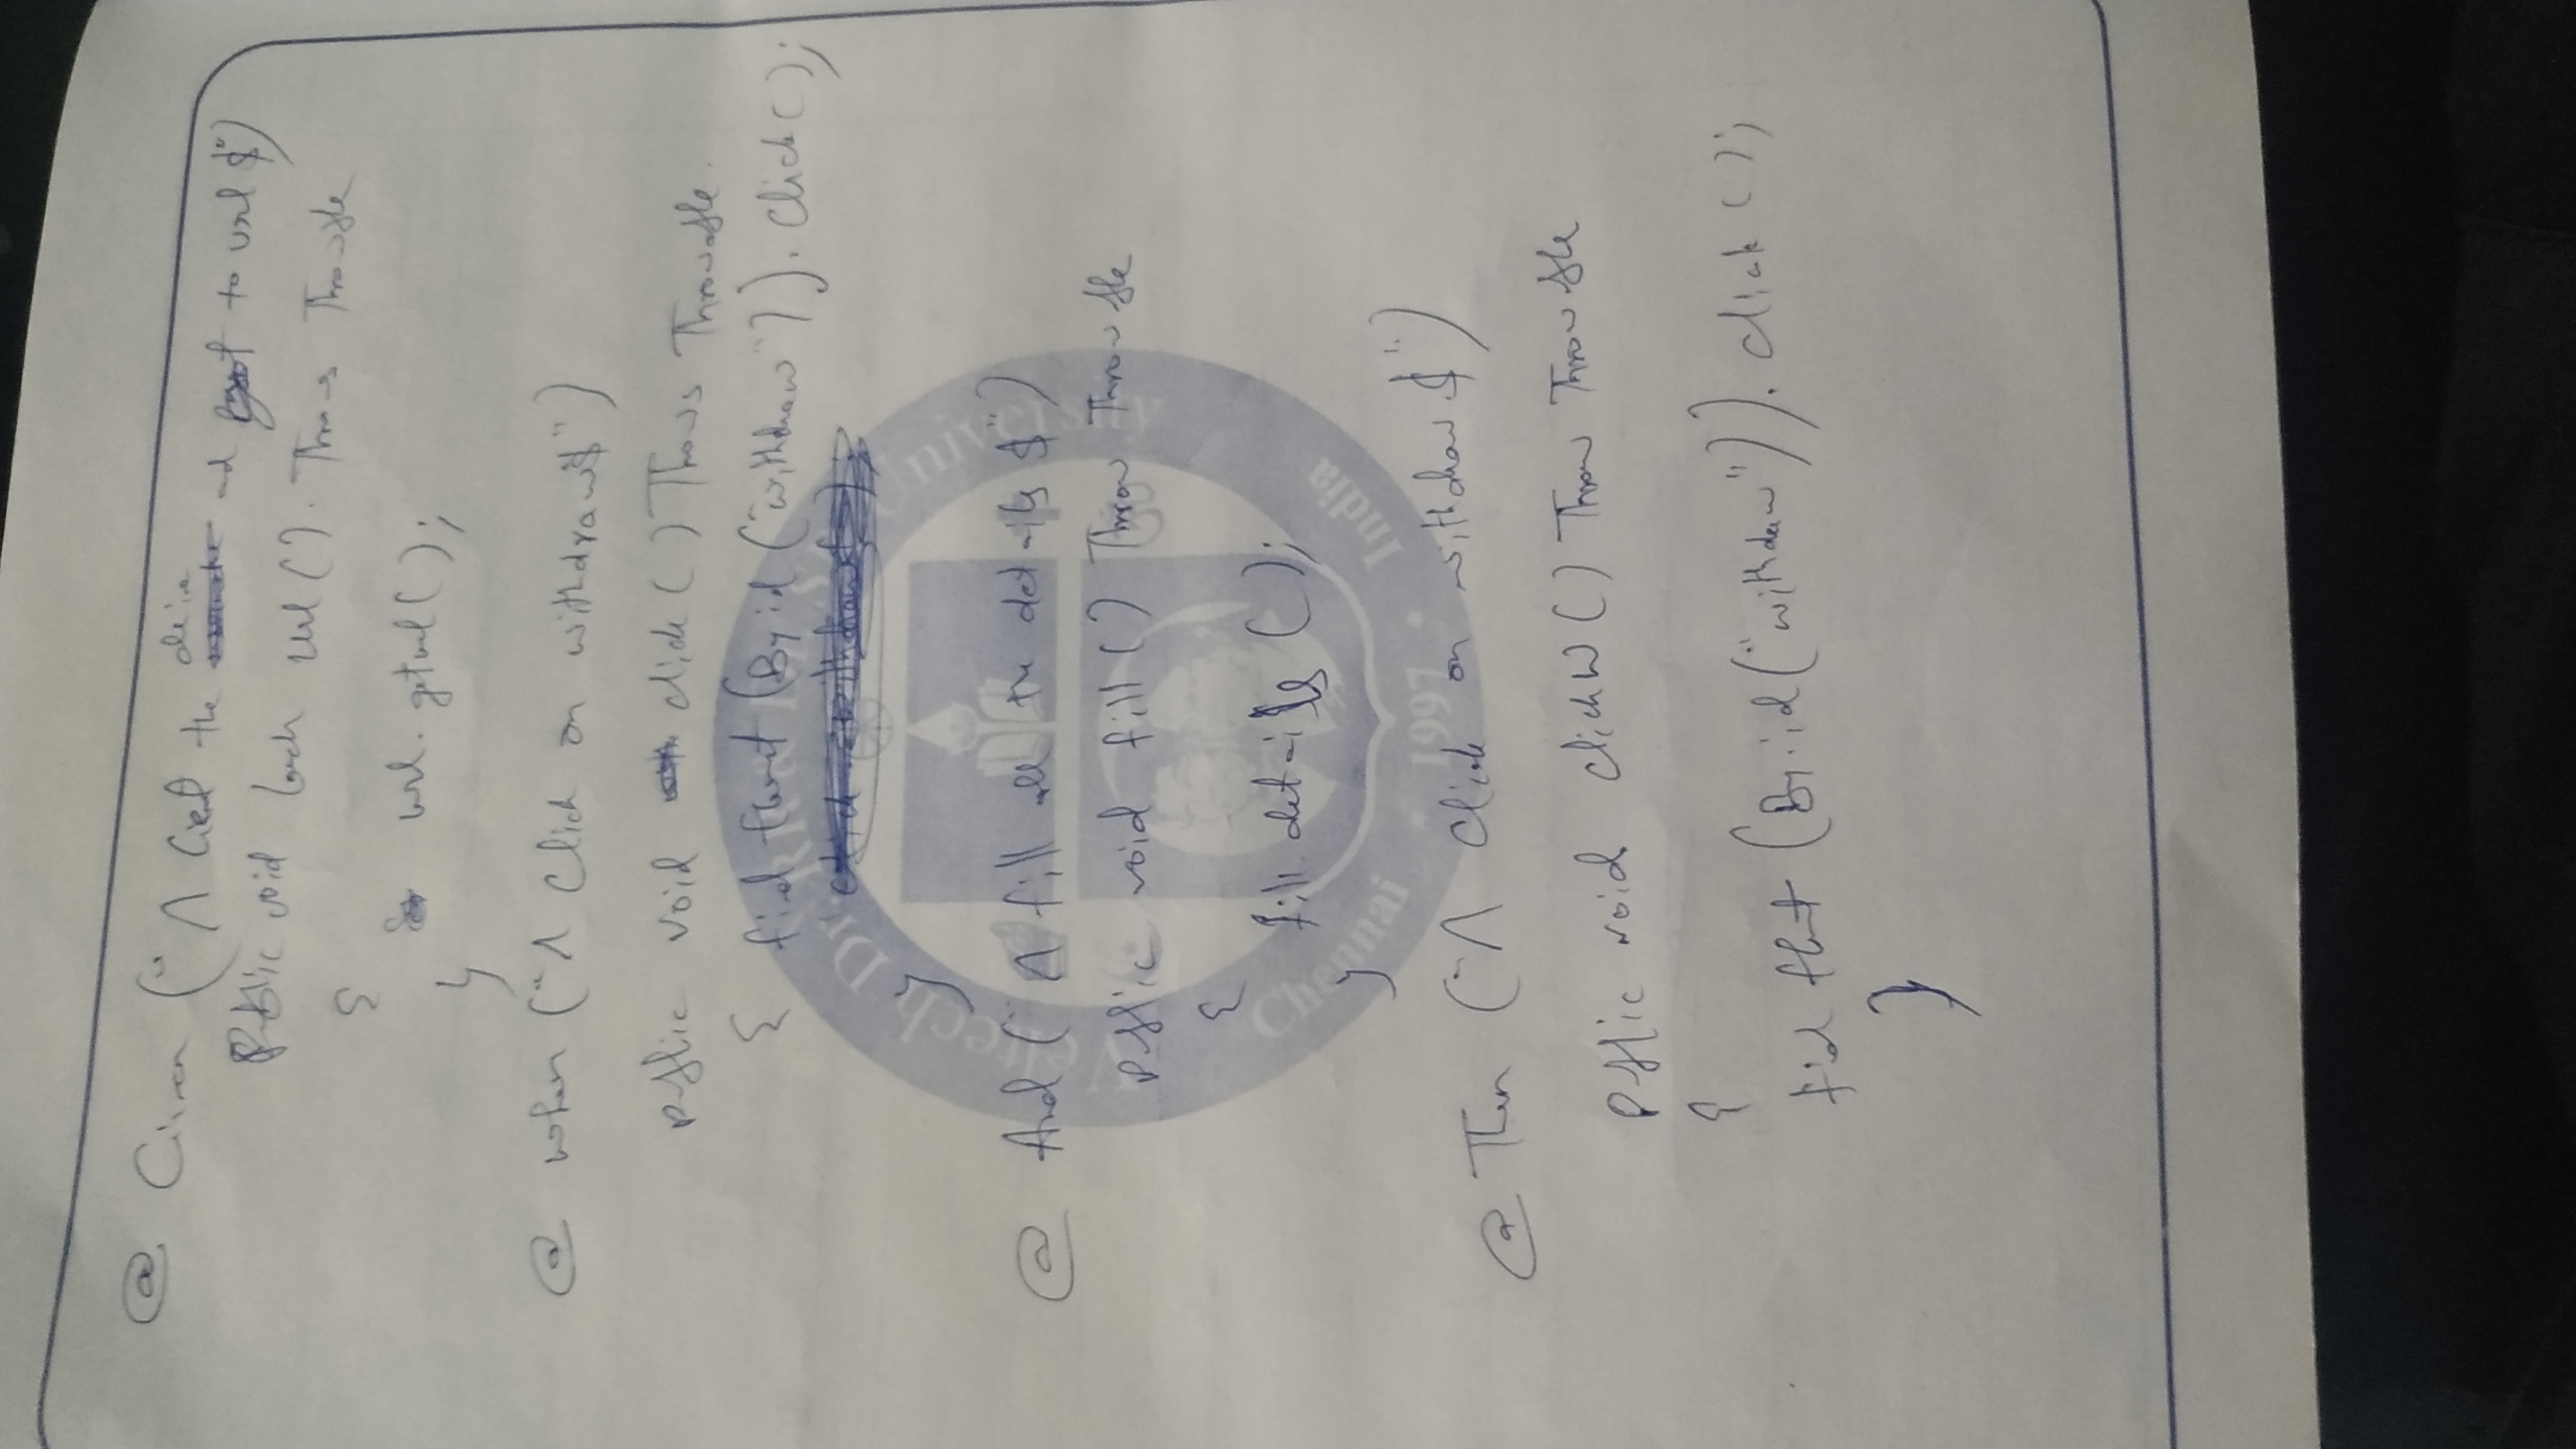 @ Given ("^ Get the driver and get to url $")
public void launch url(). Throws Throwable
{
url. geturl();
}
@ when ("^ Click on withdraw$")
public void click() Throws Throwable.
{ findElement (By id ("withdraw")). Click();
}
@ And (" ^ fill all the details $")
public void fill() Throw Throwable
{
fill details ();
}
@ Then ("^ Click on withdraw $")
public void clickW() Throw Throwable
{
find that (By. id ("withdraw")). Click ();
}
Veltech Dr. University
Chennai 1997 India